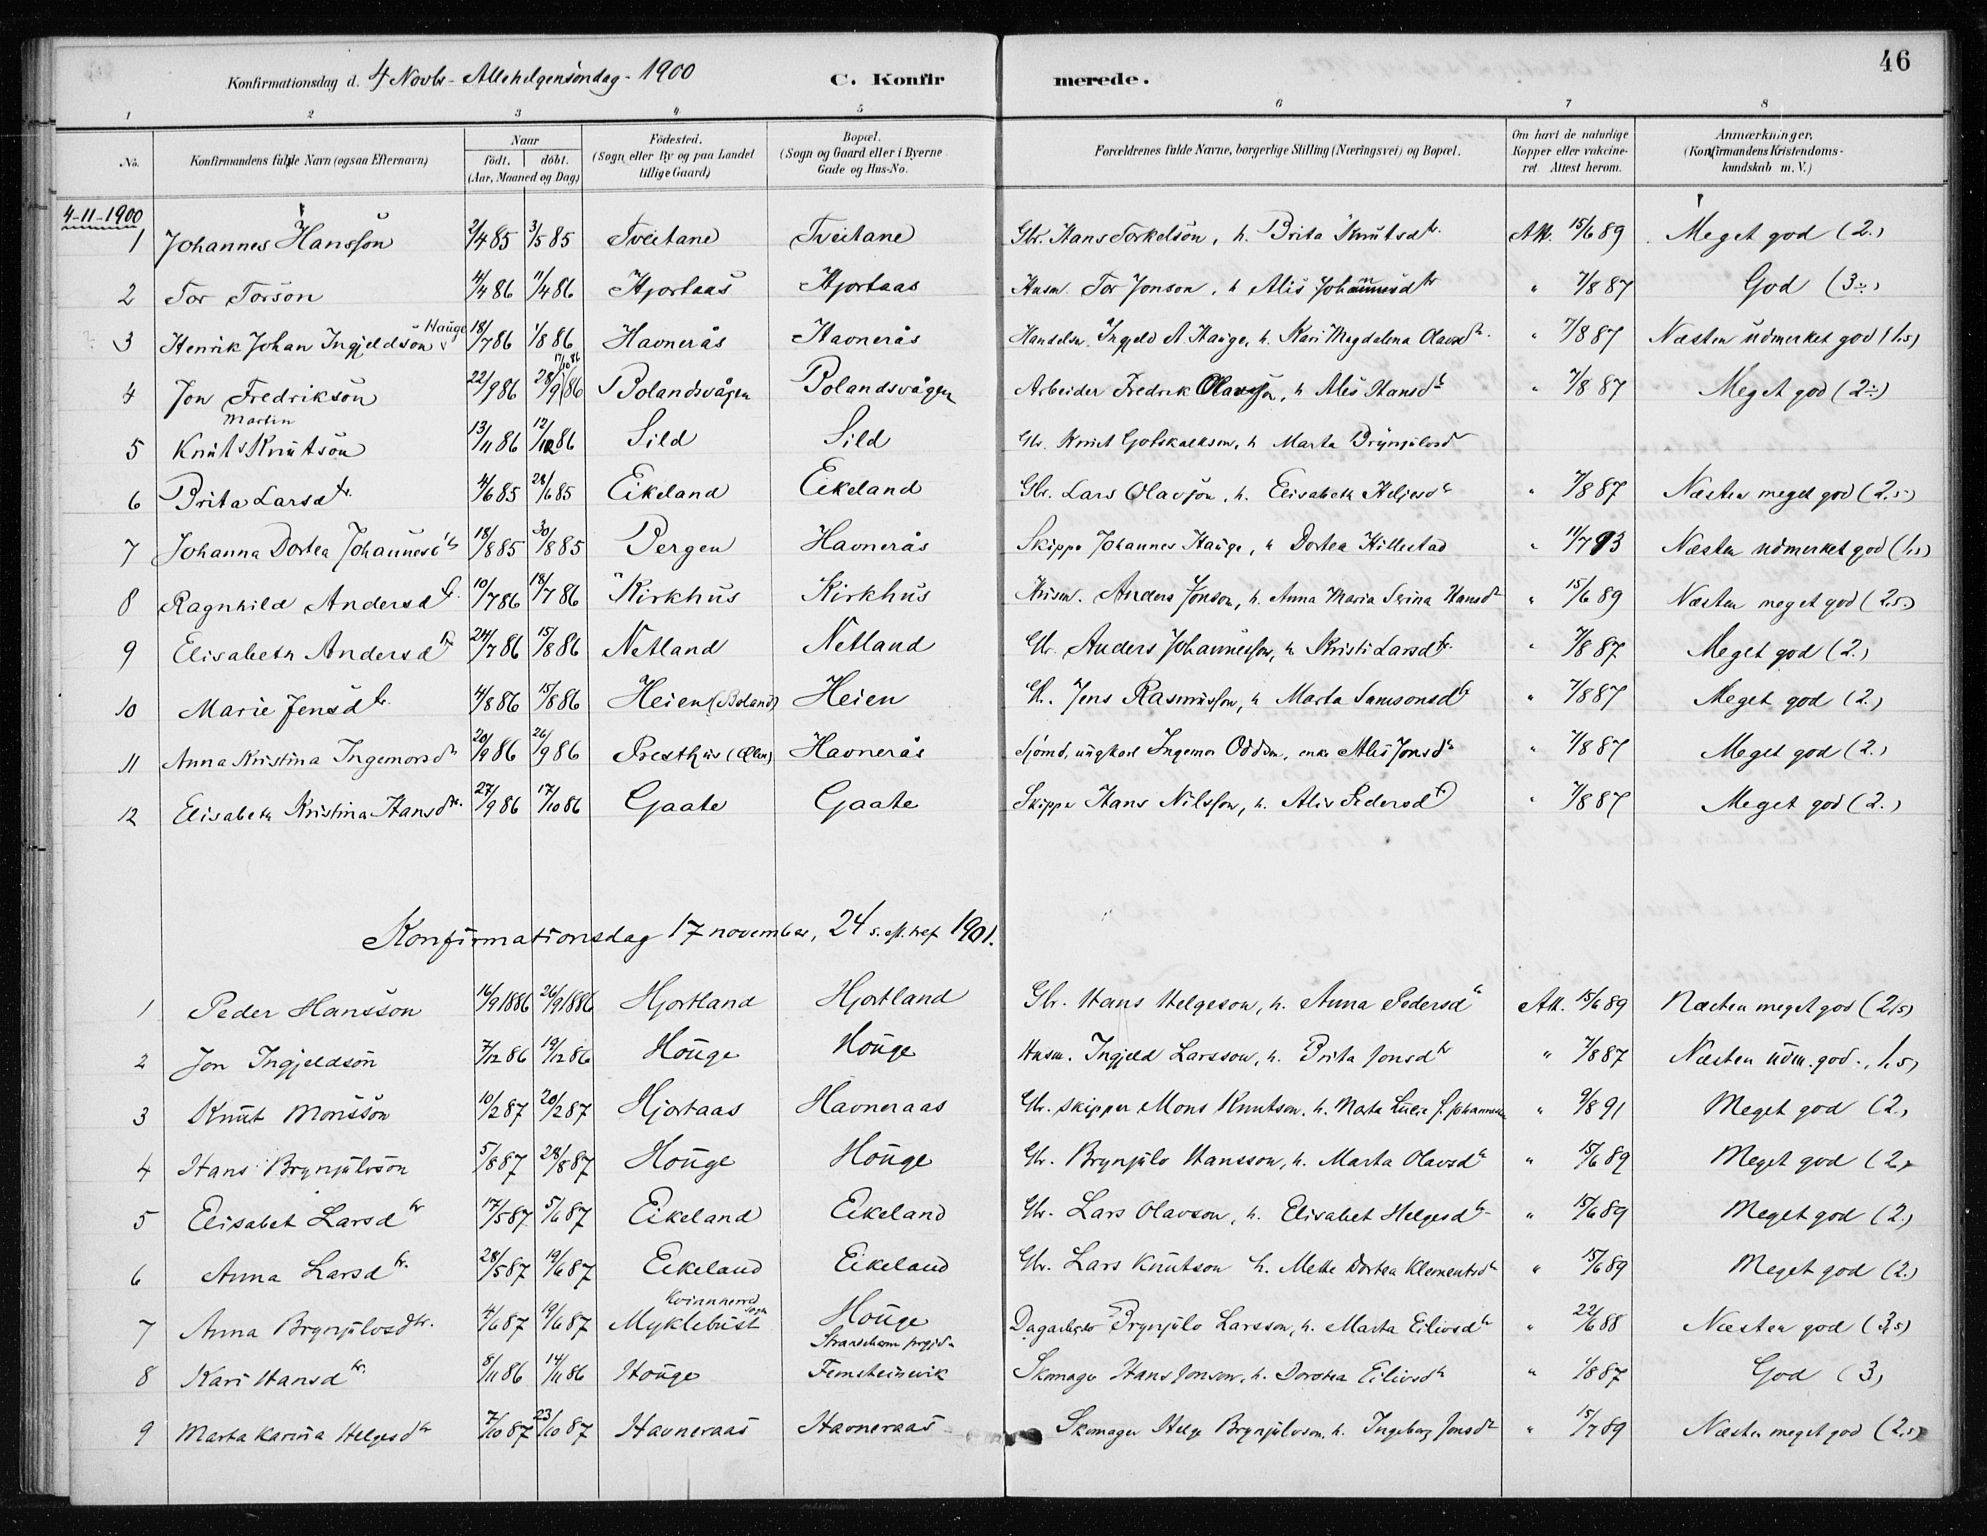 46
Konfirmationsdag d. 4 Novbr - Allehelgensöndag - 1900 C. Konfirmerede.
1 2 3 4 5 6 7 8
No. Konfirmandens fulde Navn (ogsaa Efternavn) Naar födt. döbt. (Aar, Maaned og Dag) Födested. (Sogn eller By og paa Landet tillige Gaard) Bopæl. (Sogn og Gaard eller i Byerne Gade og Hus-No. Forældrenes fulde Navne, borgerlige Stilling (Næringsvei) og Bopæl. Om havt de naturlige Kopper eller vakcineret. Attest herom. Anmærkninger. (Konfirmandens Kristendomskundskab m. V.)
4-11-1900
1 Johannes Hansson 2/4 85 3/5 85 Tveitane Tveitane Gbr. Hans Torkelsön, h. Brita Knutsdtr. Att. 15/6 89 Meget god (2.)
2 Tor Torson 4/4 86 11/4 86 Hjortaas Hjortaas Husm. Tor Jonson, h. Alis Johannesdtr " 7/8 87 God (3.)
3 Henrik Johan Ingjeldson Hauge 18/7 86 1/8 86 Havnerås Havnerås Handelsm. Ingjeld A Hauge, h. Kari Magdalena Olavsdtr. " 7/8 87 Næsten udmerket god (1,5)
4 Jon Fredrikson 22/9 86 28/9 86 17/10 86 Bolandsvågen Bolandsvågen Arbeider Fredrik Olavsson, h. Alis Hansdtr " 7/8 87 Meget god (2.)
5 Knut Martin Knutson 13/11 86 12/12 86 Sild Sild Gbr. Knut Gotskalkson, h. Marta Brynjulvsdtr
6 Brita Larsdtr. 4/6 85 28/6 85 Eikeland Eikeland Gbr. Lars Olavson, h. Elisabeth Helgesdtr " 7/8 87 Næsten meget god (2,5)
7 Johanna Dortea Johannesdtr 18/8 85 30/8 85 Bergen Havnerås Skipper Johannes Hauge, h Dortea Hillestad " 11/7 93 Næsten udmerket god (1,5)
8 Ragnhild Andersdtr. 10/7 86 18/7 86 Kirkhus Kirkhus Husm. Anders Jonson, h. Anna Maria Serina Hansdtr " 15/6 89 Næsten meget god (2,5)
9 Elisabeth Andersdtr 24/7 86 15/8 86 Netland Netland Gbr. Anders Johannesson, h Kristi Larsdtr. " 7/8 87 Meget god (2.)
10 Marie Jensdtr. 4/8 86 15/8 86 Heien (Boland) Heien Gbr. Jens Rasmusson, h Marta Samsonsdtr " 7/8 87 Meget god (2.)
11 Anna Kristina Ingemorsdtr 20/9 86 26/9 86 Presthus (Ølen) Havnerås Sjömd, ungkarl Ingemor Oddson, enke Alis Jonsdtr " 7/8 87 Meget god (2.)
12 Elisabeth Kristina Hansdtr. 27/9 86 17/10 86 Gaate Gaate Skipper Hans Nilsson, h. Alis Pedersdtr " 7/8 87 Meget god (2.)
Konfirmationsdag 17 november, 24 s. ef. tref 1901.
1 Peder Hansson 16/9 1886 26/9 1886 Hjortland Hjortland Gbr. Hans Helgeson, h. Anna Pedersdtr Att. 15/6 89 Næsten meget god (2,5)
2 Jon Ingjeldson 7/12 86 19/12 86 Houge Houge Husm. Ingjeld Larsson, h. Brita Jonsdtr " 7/8 87 Næsten udm. god., 1,5)
3 Knut Monsson 10/2 87 20/2 87 Hjortaas Havneraas Gbr. skipper Mons Knutson, h. Marta Lucia f. Johannesdtr " 9/8 91 Meget god (2.)
4 Hans Brynjulvson 5/8 87 28/8 87 Houge Houge Gbr. Brynjulv Hansson, h. Marta Olavsdtr " 15/6 89 Meget god (2.)
5 Elisabet Larsdtr 17/5 87 5/6 87 Eikeland Eikeland Gbr. Lars Olavson, h. Elisabet Helgesdtr " 15/6 89 Meget god (2.)
6 Anna Larsdtr. 28/5 87 19/6 87 Eikeland Eikeland Gbr. Lars Knutson h. Mette Dortea Klementsdtr " 15/6 89 Meget god (2.)
7 Anna Brynjulvsdtr. 4/6 87 19/6 87 Kvinnherred sogn Myklebust Houge Dagarbeider Brynjulv Larsson, h. Marta Eilivsdtr " 22/6 88 Næsten god (3,5)
8 Kari Hansdtr. 8/11 86 14/11 86 Houge Strandebarm prgjd. Femsteinevik Skomager Hans Jonson, h. Dorotea Eilivsdtr " 1/8 87 God (3)
9 Marta Karina Helgesdtr 7/10 87 23/10 87 Havneraas Havneraas Skomager Helge Brynjulvson, h. Ingeborg Jonsdtr " 15/7 89 Næsten meget god (2,5)